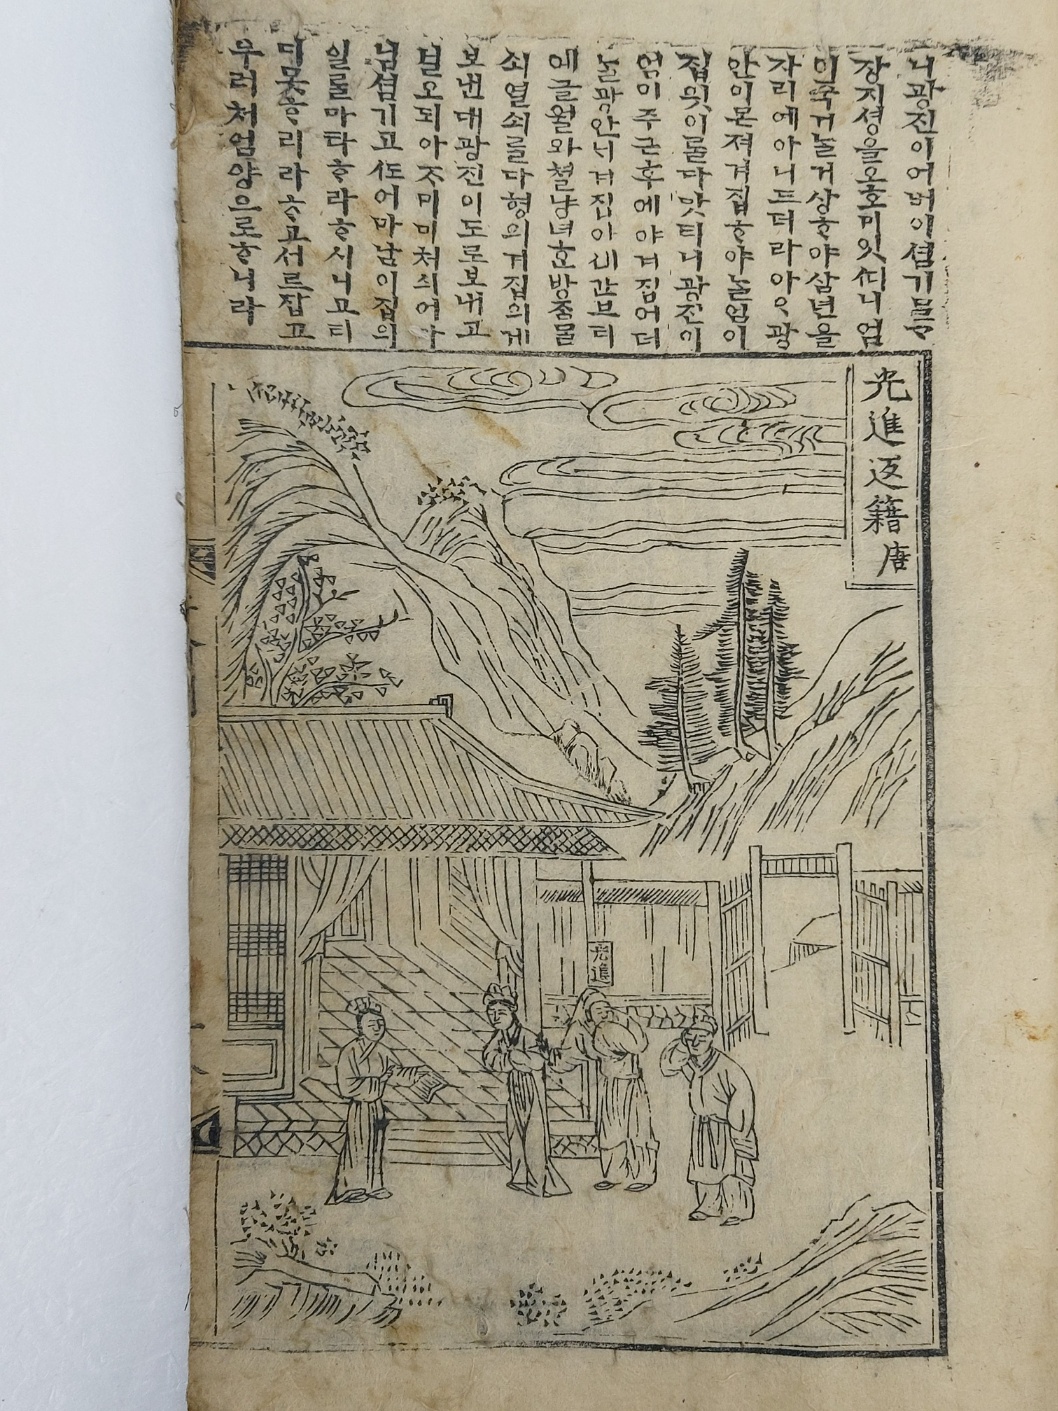 니광진이어버이셤기믈ᄒᆞ
장지셩을오호미잇더니엄
미죽거늘거상ᄒᆞ야삼년을
자리예아니드더라아ᅌᆞ광
안이몬져겨집ᄒᆞ야늘엄이
집읫이를다맛티니광진이
엄미주근후에야겨집어더
늘광안니겨집이세간브티
에글월와쳘냥녀흔방즘믈
쇠열쇠를다형의겨집의게
보낸대광진이도로보내고
닐오되아ᄌᆞ미미처싀어마
님셤기고ᄯᅩ어마님이집의
일를마타ᄒᆞ라ᄒᆞ시니고티
디못ᄒᆞ리라ᄒᆞ고서르잡고
우러처엄양으로ᄒᆞ니라
光進返籍 唐
光進